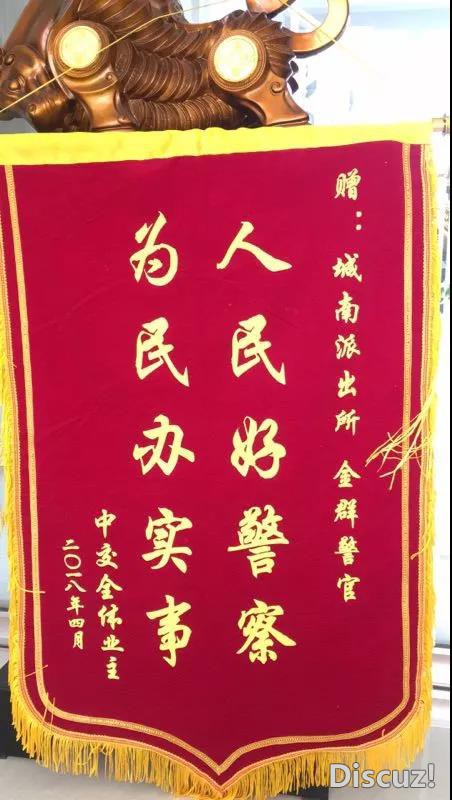 赠：城南派出所 金群警官
人民好警察
为民办实事
中交全体业主
二〇一八年四月
Discuz!